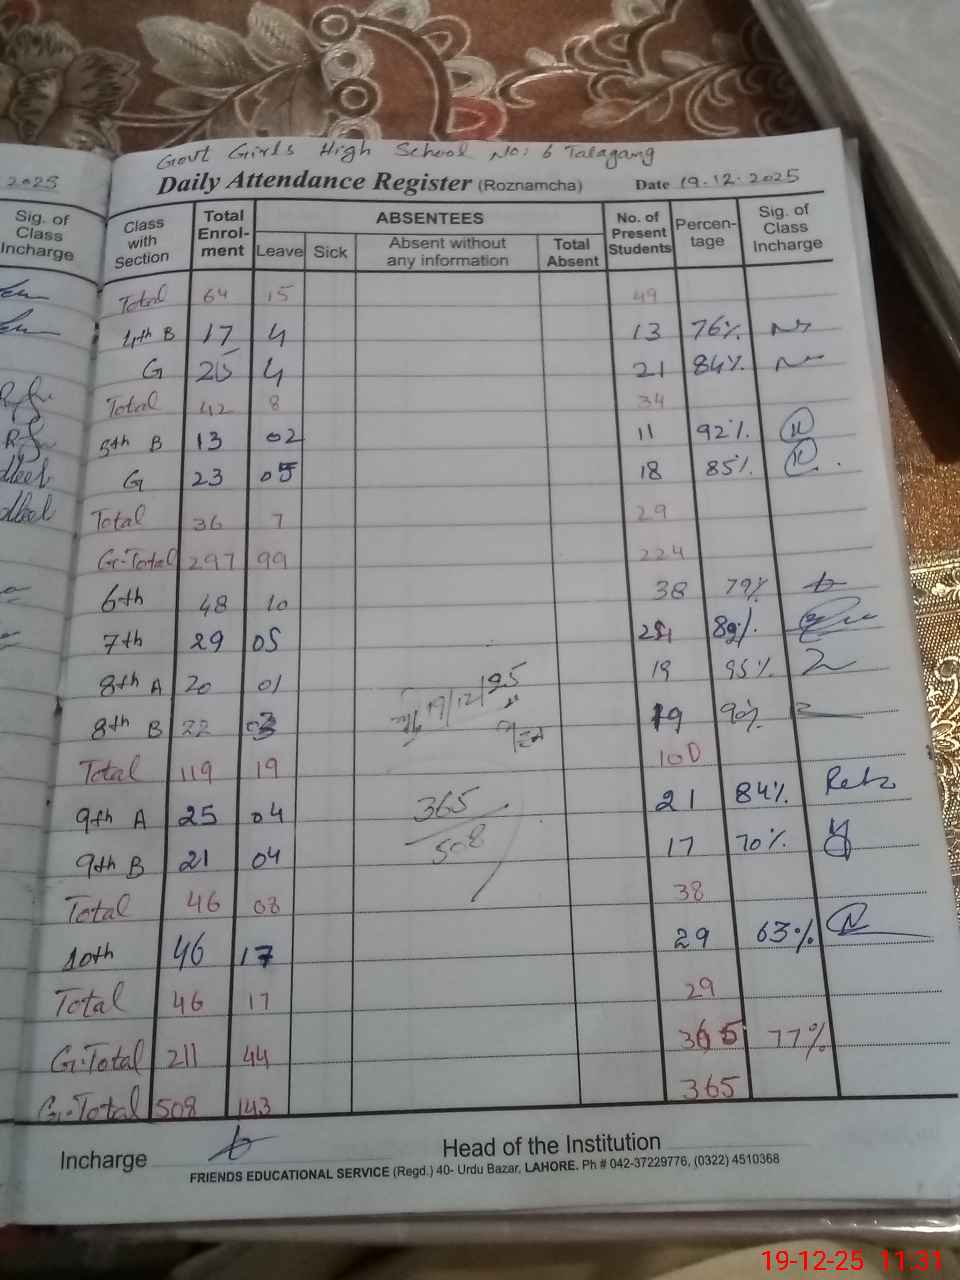 Govt Girls High School No: 6 Talagang
2025
Daily Attendance Register (Roznamcha) Date 19.12.2025
Sig. of Class Incharge
Class with Section Total Enrol-ment ABSENTEES Leave Sick Absent without any information Total Absent No. of Present Students Percen-tage Sig. of Class Incharge
Total 64 15 49
4th B 17 4 13 76%
G 25 4 21 84%
Total 42 8 34
5th B 13 02 11 92%
G 23 05 18 85%
Total 36 7 29
Gr-Total 297 99 224
6th 48 10 38 79%
7th 29 05 24
8th A 20 01 19 95%
8th B 22 03 19 90%
19/12/25
Total 119 19 100
9th A 25 04 21 84%
365
508
9th B 21 04 17 70%
Total 46 08 38
10th 46 17 29 63%
Total 46 17 29
G.Total 211 44 365 77%
G.Total 508 143 365
Incharge Head of the Institution
FRIENDS EDUCATIONAL SERVICE (Regd.) 40- Urdu Bazar, LAHORE. Ph # 042-37229776, (0322) 4510368
19-12-25 11:31